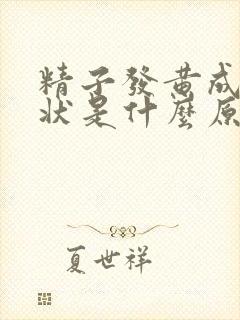 精子發黃成
狀是什麼原
夏世祥